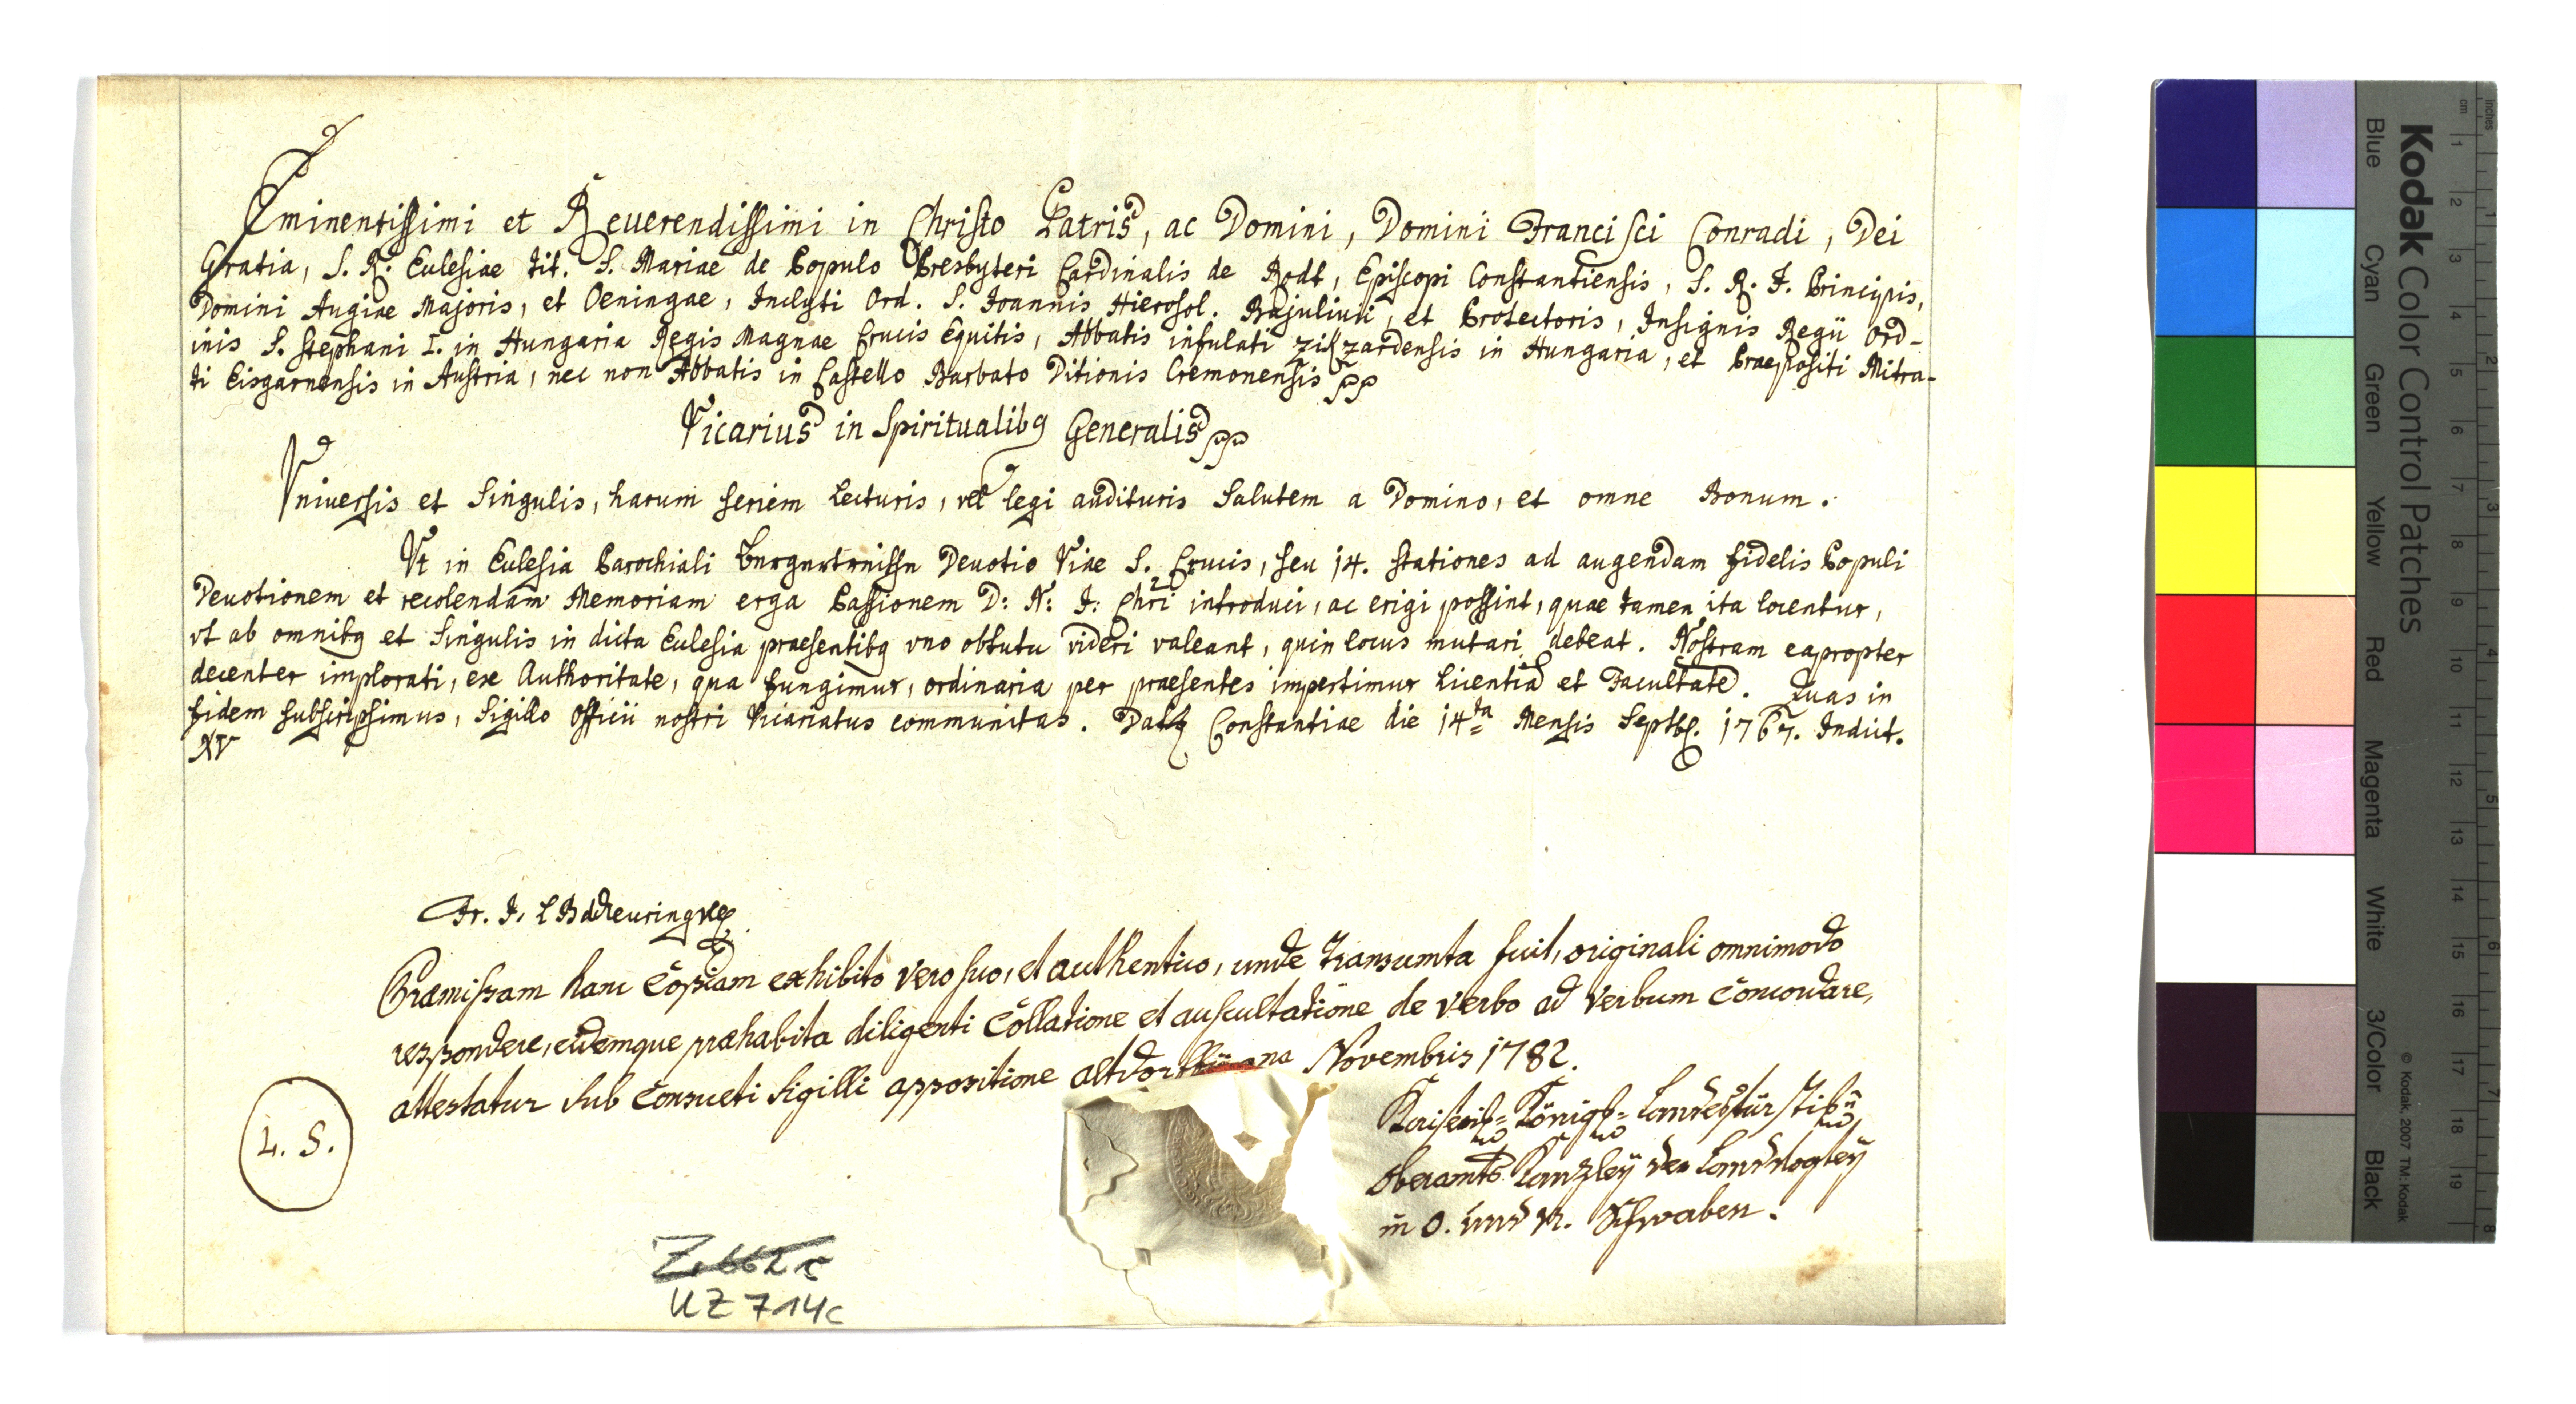 Eminentissimi et Reuerendissimi in Christo Patris, ac Domini, Domini Francisci Conradi, Dei
Gratia, S. R. Ecclesiae Tit. S. Mariae de Populo Presbyteri Cardinalis de Rodt, Episcopi Constantiensis, S. R. I. Principis,
Domini Augiae Majoris, et Oeningae, Inclyti Ord. S. Joannis Hierosol. Bajuliuii, et Protectoris, Insignis Regii Ord-
inis S. Stephani I. in Hungaria Regis Magnae Crucis Equitis, Abbatis infulati Zikzardensis in Hungaria, et Praepositi Mitra-
ti Eisgarnensis in Austria, nec non Abbatis in Castello Barbato Ditionis Cremonensis pp
Vicarius in Spiritualibq Generalis pp
Vniversis et Singulis, harum seriem Lecturis, vel legi audituris Salutem a Domino, et omne Bonum.
Vt in Ecclesia Parochiali Devotio Viae S. Crucis, seu 14. stationes ad augendam fidelis Populi
Deuotionem et recolendam Memoriam erga Passionem D: N: J: Chri introduci, ac erigi possint, quae tamen ita locentur,
vt ab omnibq et Singulis in dicta Ecclesia praesentibq vno obtutu videri valeant, quin locus mutari debeat. Nostram eapropter
decenter implorati, ex Authoritate, qua fungimur, ordinaria per praesentes impertimur licentiã et Facultatẽ. Quas in
fidem subscripsimus, Sigillo Officii nostri Vicariatus communitas. Datq Constantiae die 14ta Mensis Septbr. 1767. Indict.
XV
Fr. J. L B d Deuring
Præmissam hanc Copiam exhibito vero suo, et authentico, unde transumta fuit, originali omnimodo
respondere, eidemque præhabita diligenti Collatione et auscultatione de verbo ad verbum Concordare,
attestatur sub Consueti Sigilli appositione Altdorffii Novembris 1782.
L. S.
Kaiserl= Königl=
Oberamts Kanzley der Landvogtey
in O. und N. Schwaben.
UZ 714c
Kodak Color Control Patches
Blue Cyan Green Yellow Red Magenta White 3/Color Black
© Kodak, 2007 TM: Kodak
cm 1 2 3 4 5 6 7 8 9 10 11 12 13 14 15 16 17 18 19
inches 1 2 3 4 5 6 7 8